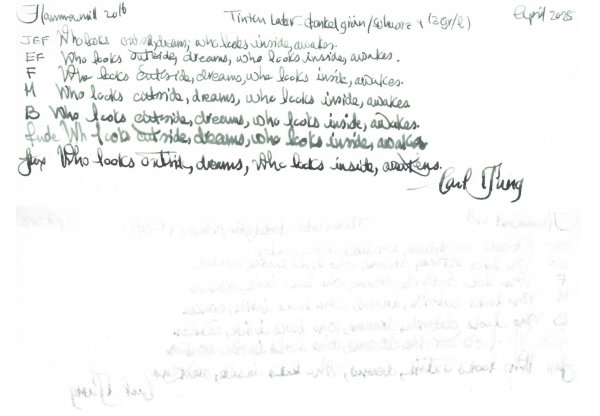 Hammermill 20lb Tinten Labor dunkelgrün/schwarz + (3gr/l) April 2025
JEF Who looks outside, dreams, who looks inside, awakes.
EF Who looks outside, dreams, who looks inside, awakes.
F Who looks outside, dreams, who looks inside, awakes.
M Who looks outside, dreams, who looks inside, awakes
B Who looks outside, dreams, who looks inside, awakes.
fude Wh looks outside, dreams, who looks inside, awakes
flex Who looks outside, dreams, who looks inside, awakens.
Carl Jung